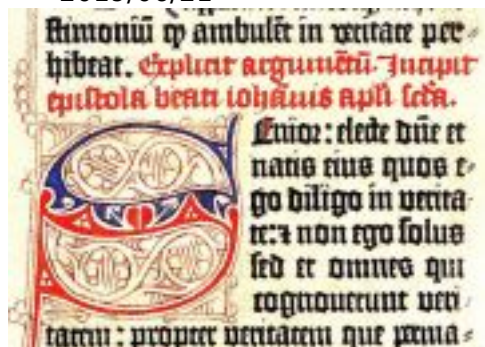 stimoniū ꝙ ambulēt in veritate per⸗
hibeat. Explicit argumētū. Incipit
epistola beati iohānis apli scda.
Senior: electe dn̄e et
natis eius quos e⸗
go diligo in verita⸗
te: ⁊ non ego solus
sed et omnes qui
cognouerunt veri⸗
tatem: propter veritatem que perma⸗